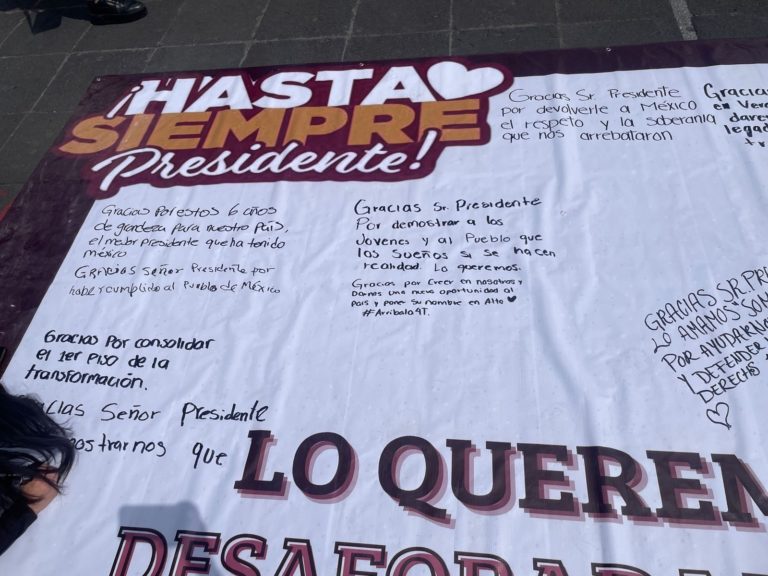 ¡HASTA
SIEMPRE
Presidente!
Gracias Sr. Presidente
por devolverle a México
el respeto y la soberania
que nos arrebataron
Gracias
en Vera
legad
Gracias Por estos 6 años
de grandeza para nuestro País,
el mejor presidente que ha tenido
méxico
Gracias señor Presidente por
haber cumplido al Pueblo de México
Gracias Sr. Presidente
Por demostrar a los
Jovenes y al Pueblo que
los sueños si se hacen
realidad. Lo queremos.
Gracias por Creer en nosotros y
Darnos una nueva oportunidad al
País y poner su nombre en Alto
#Arriba la 4T.
GRACIAS SR. PRE
LO AMAMOS
POR AYUDARN
Y DEFENDER
DERECHOS
Gracias Por consolidar
el 1er Piso de la
transformación.
cias Señor Presidente
ostrarnos que
LO QUEREM
DESAFORADA